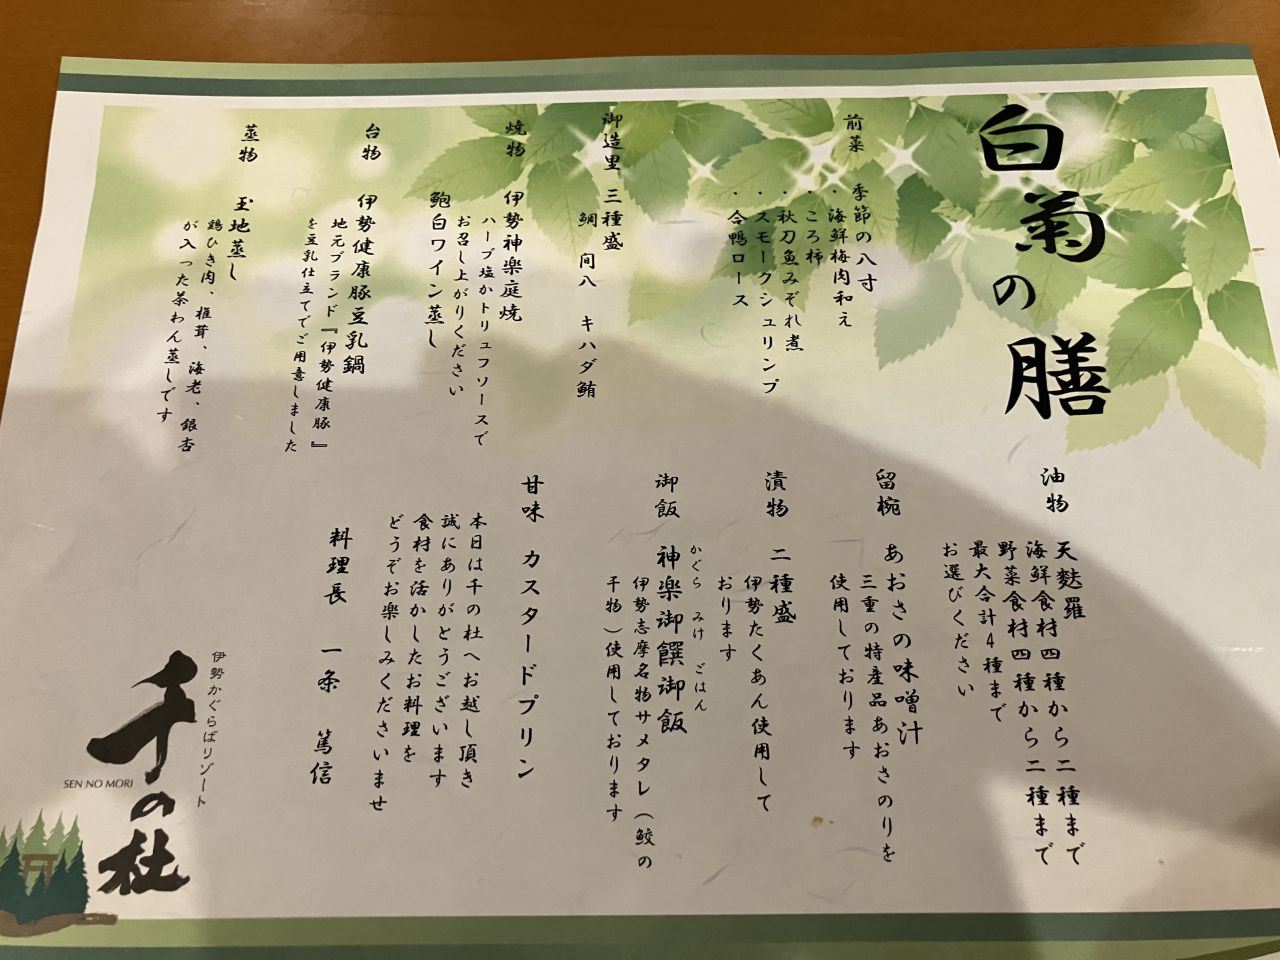 白菊の膳
前菜 季節の八寸
・海鮮梅肉和え
・ころ柿
・秋刀魚みぞれ煮
・スモークシュリンプ
・合鴨ロース
御造里 三種盛
鯛 間八 キハダ鮪
焼物 伊勢神楽庭焼
ハーブ塩かトリュフソースで
お召し上がりください
鮑白ワイン蒸し
台物 伊勢健康豚豆乳鍋
地元ブランド『伊勢健康豚』
を豆乳仕立てでご用意しました
蒸物 玉地蒸し
鶏ひき肉、椎茸、海老、銀杏
が入った茶わん蒸しです
油物 天麩羅
海鮮食材四種から二種まで
野菜食材四種から二種まで
最大合計4種まで
お選びください
留椀 あおさの味噌汁
三重の特産品あおさのりを
使用しております
漬物 二種盛
伊勢たくあん使用して
おります
かぐら みけ ごはん
御飯 神楽御饌御飯
伊勢志摩名物サメタレ(鮫の
干物)使用しております
甘味 カスタードプリン
本日は千の杜へお越し頂き
誠にありがとうございます
食材を活かしたお料理を
どうぞお楽しみくださいませ
料理長 一条 篤信
伊勢かぐらばリゾート
千の杜
SEN NO MORI